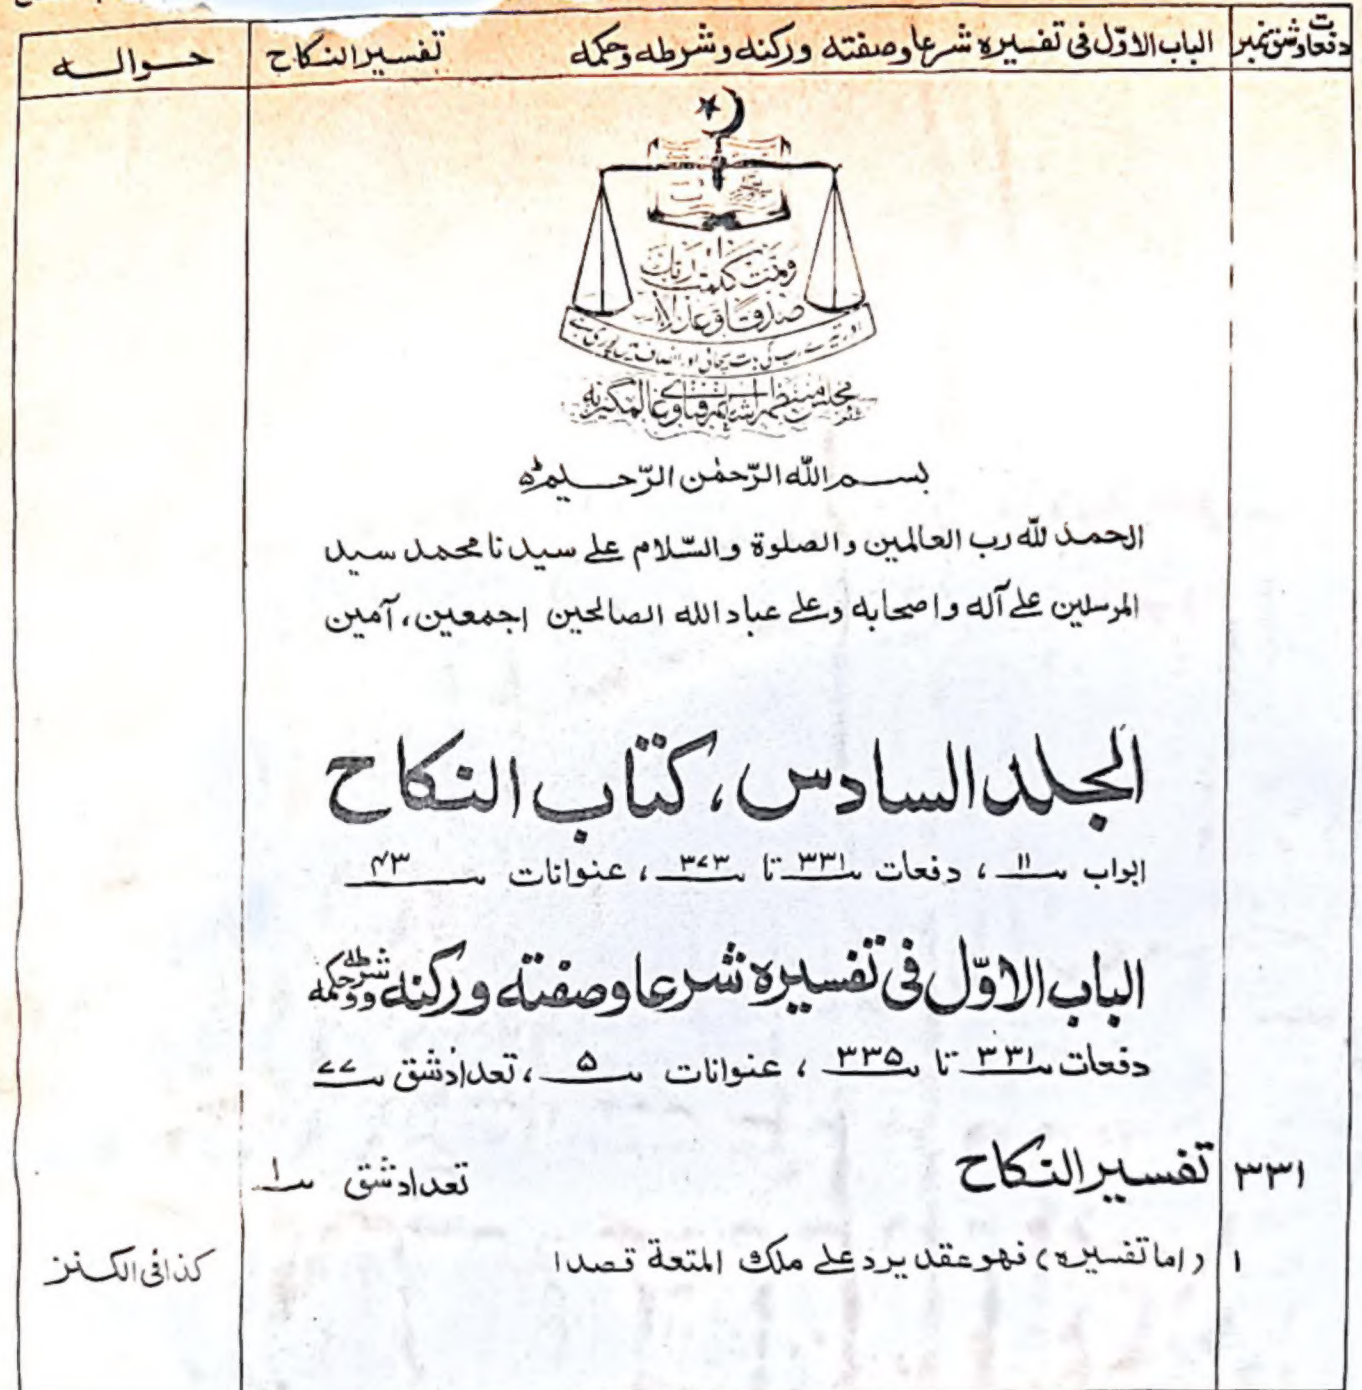 دفعات وشق نمبر
الباب الاوّل فی تفسیرہ شرعا وصفتہ ورکنہ وشرطہ وحکمہ
تفسیر النکاح
حوالہ
وتمت کلمت ربک
صدقا وعدلا
اور تیرے رب کی بات سچائی اور انصاف میں پوری ہے
بسم اللہ الرّحمٰن الرّحیم
الحمد للّٰہ رب العالمین والصلوۃ والسّلام علے سیدنا محمد سید
المرسلین علے آلہ واصحابہ وعلے عباد اللہ الصالحین اجمعین، آمین
الجلد السادس، کتاب النکاح
ابواب ۱۱، دفعات ۳۳۱ تا ۳۷۳، عنوانات ۴۳
الباب الاوّل فی تفسیرہ شرعا وصفتہ ورکنہ وشرطہ وحکمہ
دفعات ۳۳۱ تا ۳۳۵، عنوانات ۵، تعداد شق ۷۷
۳۳۱ تفسیر النکاح تعداد شق ۱
۱ (اما تفسیرہ) فھو عقد یرد علے ملک المتعة قصدا کذا فی الکنز